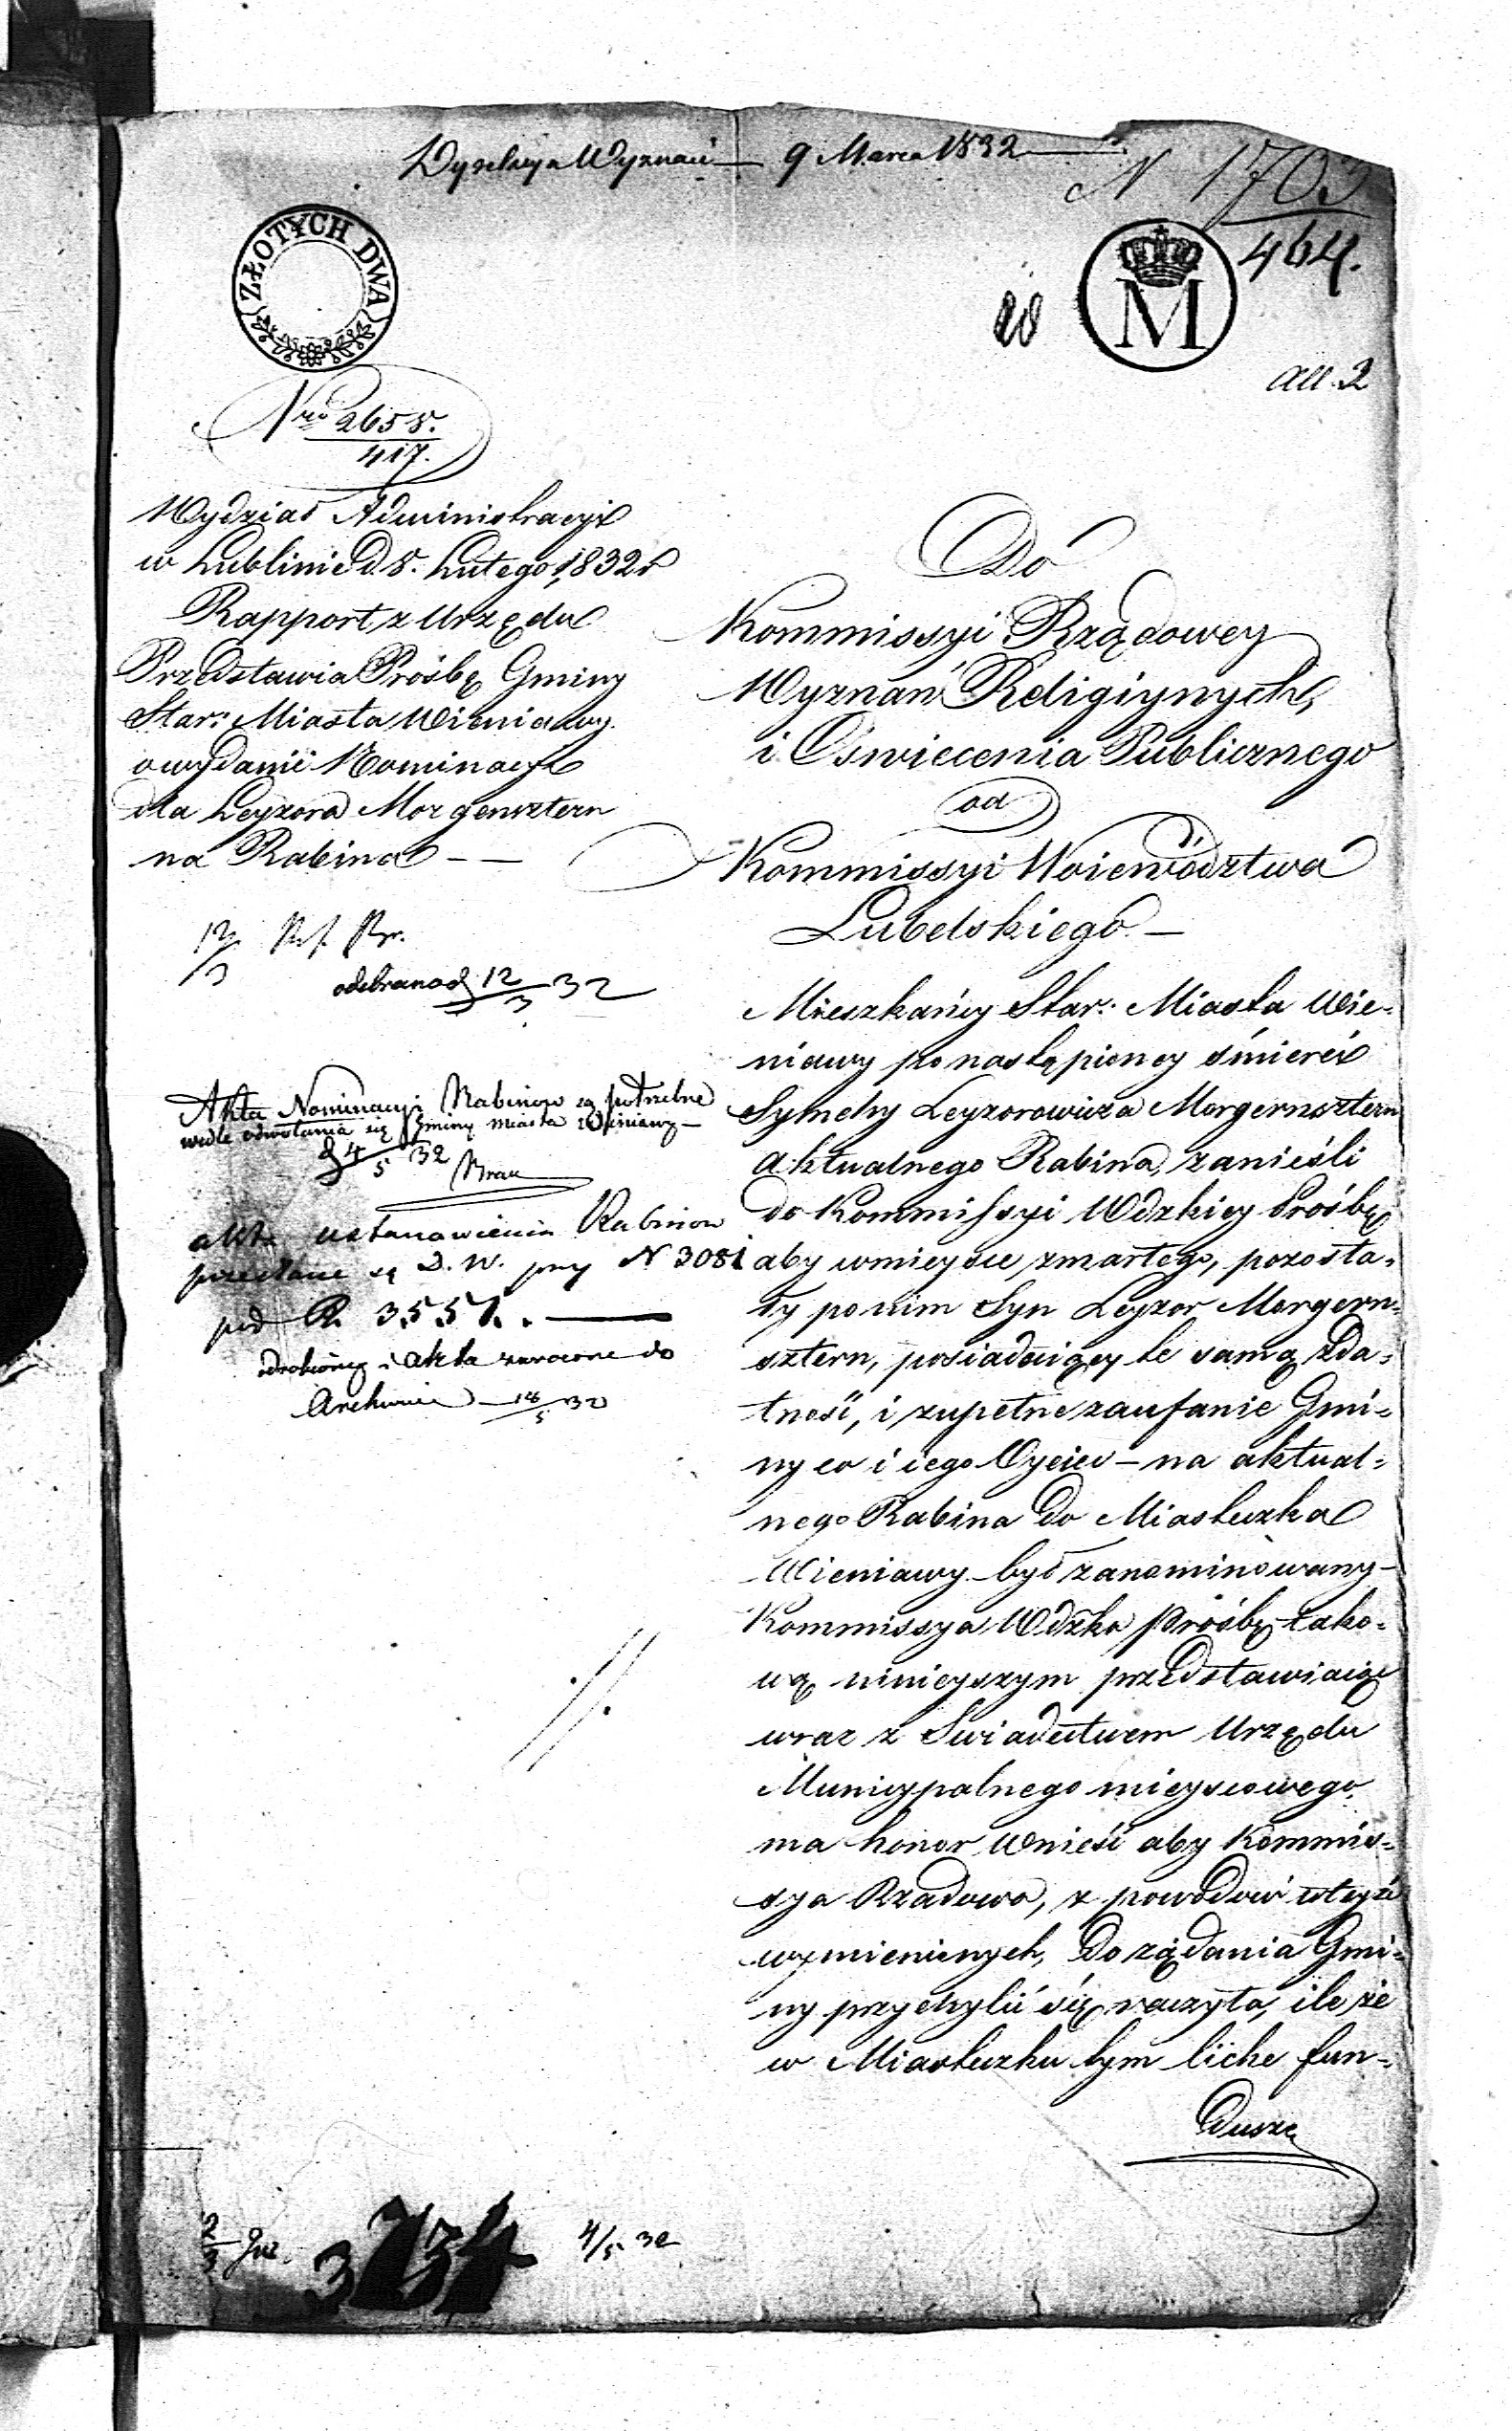 Dyrekcya Wyznań — 9 Marca 1832
N 1703
464.
ZŁOTYCH DWA
M
All. 2
Nro 2658.
417.
Wydział Administracyi
w Lublinie D. 8. Lutego 1832 r
Rapport z Urzędu
Przedstawia Prośbę Gminy
Star: Miasta Wieniawy
o wydanie Nominacyi
dla Leyzora Morgensztern
na Rabina — —
12/3
odebrano d 12/3 32
Akta Nominacyi Rabinow są potrzebne
wedle odwołania się Gminy miasta Wieniawy —
d 4/5 32
akta ustanowienia Rabinow
przesłane są D. W. przy N 3081
pod R. 3551. —
odrobiony i akta zwrocone do
Archiwum — 18/5 32
Do
Kommissyi Rządowey
Wyznań Religiynych,
i Oświecenia Publicznego
od
Kommissyi Woiewództwa
Lubelskiego. —
Mieszkańcy Star: Miasta Wie-
niawy po nastąpioney śmierci
Symchy Leyzorowicza Morgernsztern
aktualnego Rabina, zanieśli
do Kommissyi Wdzkiey Prośbę
aby w mieysce zmarłego, pozosta-
ły po nim Syn Leyzor Morgern-
sztern, posiadaiący te samą zda-
tność, i zupełne zaufanie Gmi-
ny co i iego Oyciec — na aktual-
nego Rabina do Miasteczka
Wieniawy był zanominowany —
Kommissya Wdzka prośbę tako-
wą ninieyszym przedstawiaiąc
wraz z Swiadectwem Urzędu
Municypalnego mieyscowego,
ma honor wnieść aby Kommis-
sya Rządowa, z powodów wtęyże
wymienionych, do żądania Gmi-
ny przychylić się raczyła, ile że
w Miasteczku tym liche fun-
dusze
2/3
3734
4/5 32